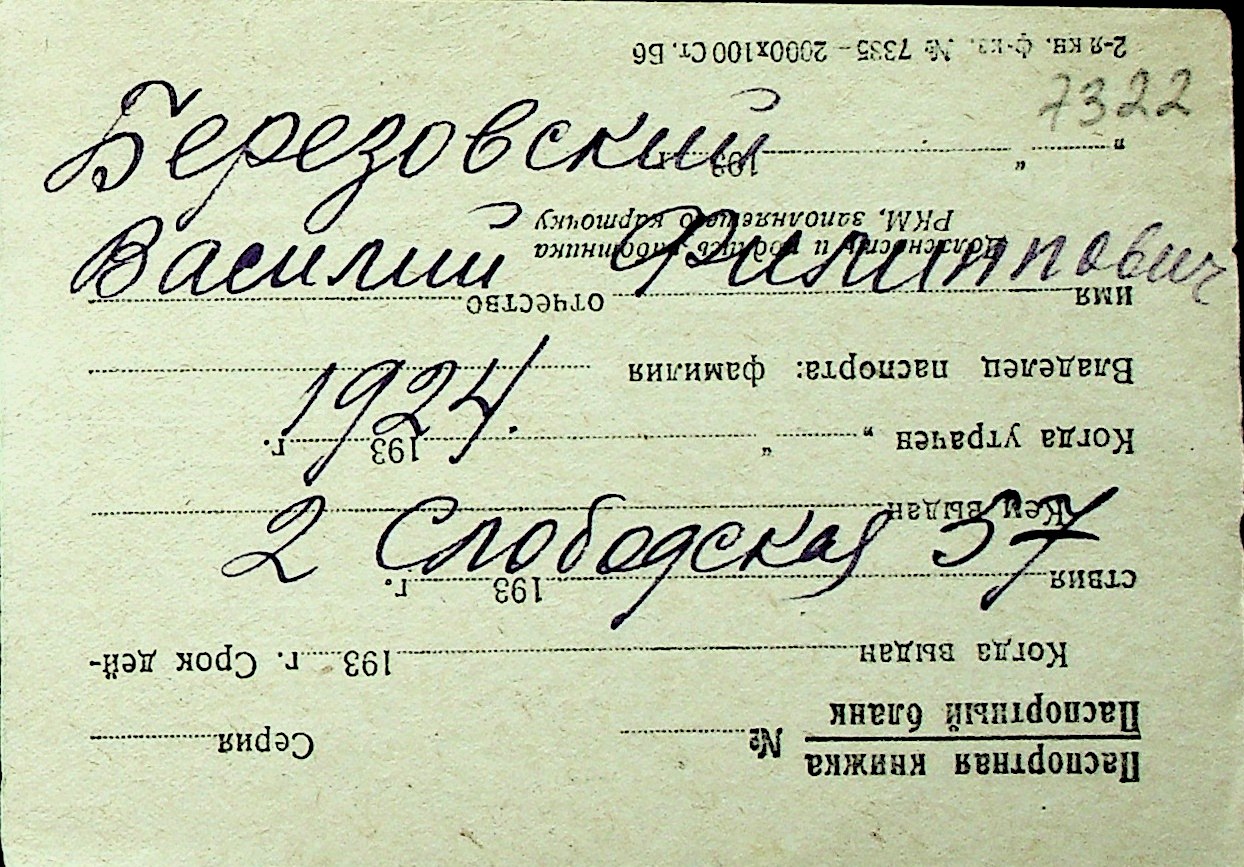 7322
Березовский
Василий Филиппович
1924.
2 Слободская 37
Паспортная книжка
Паспортный бланк
№ Серия
Когда выдан 193 г. Срок дей-
ствия 193 г.
Кем выдан
Когда утрачен „ “ 193 г.
Владелец паспорта: фамилия
имя отчество
Должность и подпись работника
РКМ, заполняющего карточку
„ “ 193 г.
2-я кн. ф-ка. № 7335 – 2000х100 Ст. Бб